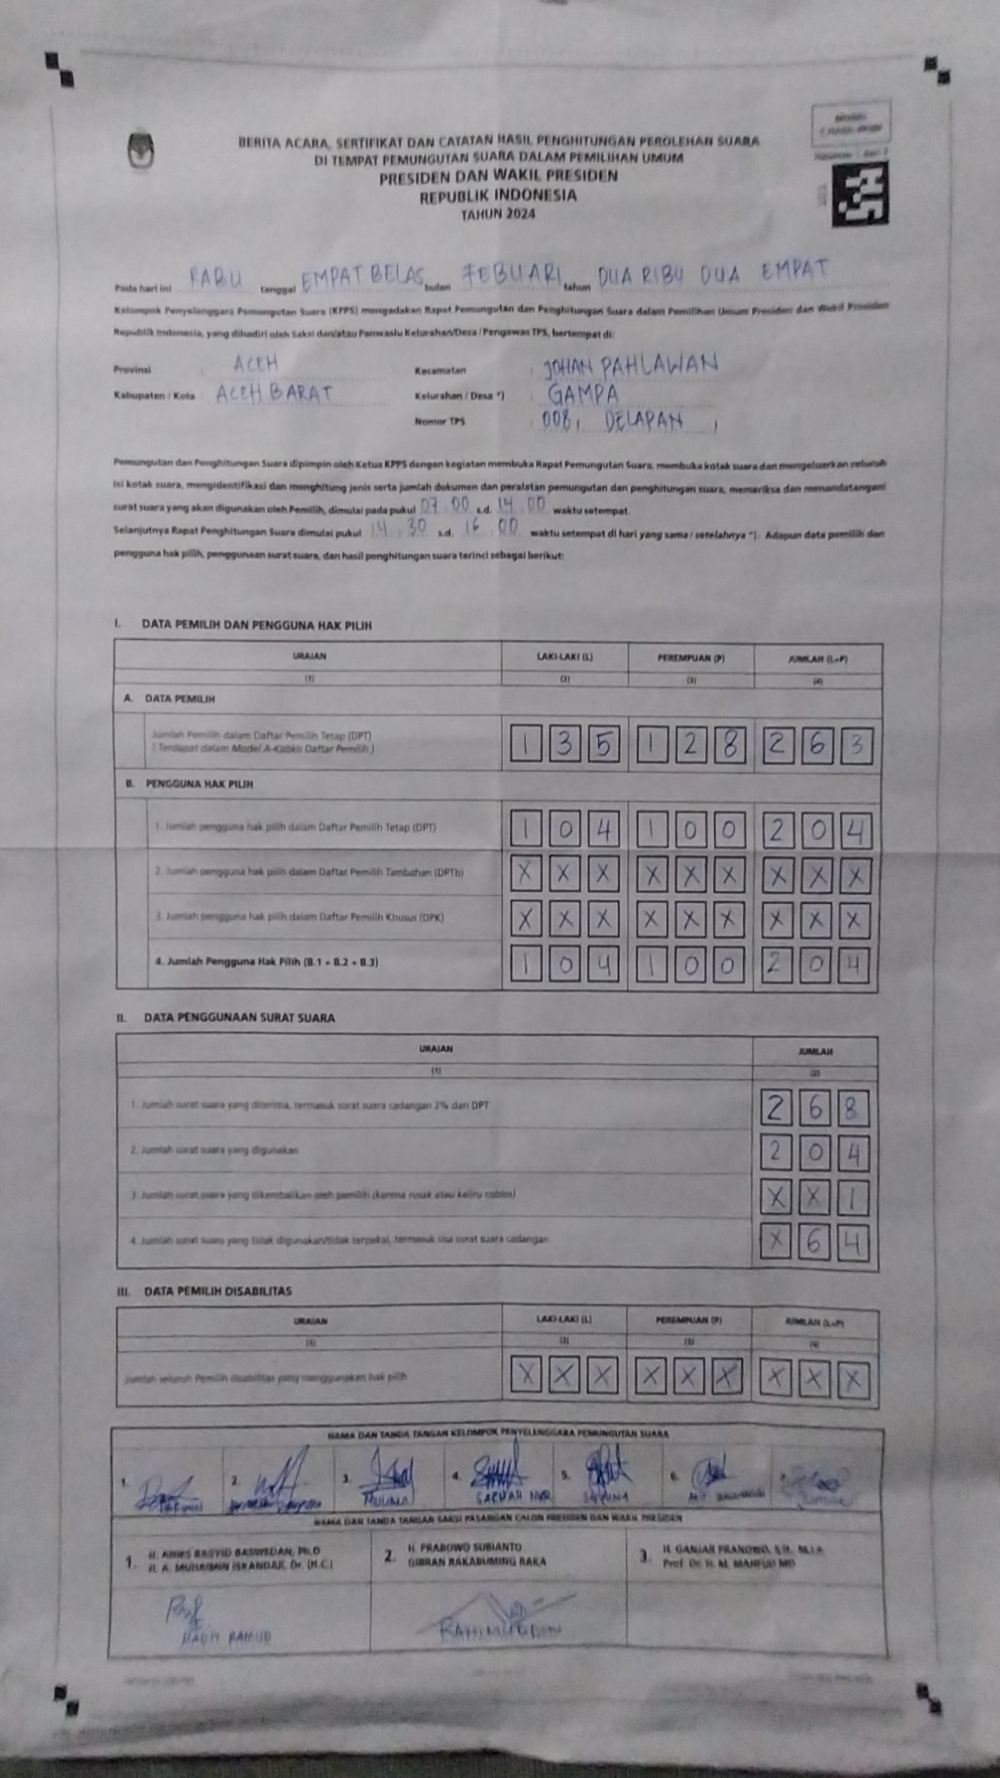 BERITA ACARA, SERTIFIKAT DAN CATATAN HASIL PENGHITUNGAN PEROLEHAN SUARA
DI TEMPAT PEMUNGUTAN SUARA DALAM PEMILIHAN UMUM
PRESIDEN DAN WAKIL PRESIDEN
REPUBLIK INDONESIA
TAHUN 2024
Pada hari ini RABU tanggal EMPAT BELAS bulan FEBUARI tahun DUA RIBU DUA EMPAT
Kelompok Penyelenggara Pemungutan Suara (KPPS) mengadakan Rapat Pemungutan dan Penghitungan Suara dalam Pemilihan Umum Presiden dan Wakil Presiden
Republik Indonesia, yang dihadiri oleh Saksi dan/atau Panwaslu Kelurahan/Desa / Pengawas TPS, bertempat di:
Provinsi ACEH Kecamatan : JOHAN PAHLAWAN
Kabupaten / Kota : ACEH BARAT Kelurahan / Desa *) : GAMPA
Nomor TPS : 008, DELAPAN ,
Pemungutan dan Penghitungan Suara dipimpin oleh Ketua KPPS dengan kegiatan membuka Rapat Pemungutan Suara, membuka kotak suara dan mengeluarkan seluruh
isi kotak suara, mengidentifikasi dan menghitung jenis serta jumlah dokumen dan peralatan pemungutan dan penghitungan suara, memeriksa dan menandatangani
surat suara yang akan digunakan oleh Pemilih, dimulai pada pukul 07 . 00 s.d. 14 . 00 waktu setempat.
Selanjutnya Rapat Penghitungan Suara dimulai pukul 14 . 30 s.d. 16 . 00 waktu setempat di hari yang sama / setelahnya *). Adapun data pemilih dan
pengguna hak pilih, penggunaan surat suara, dan hasil penghitungan suara terinci sebagai berikut:
I. DATA PEMILIH DAN PENGGUNA HAK PILIH
URAIAN LAKI-LAKI (L) PEREMPUAN (P) JUMLAH (L+P)
(1) (2) (3) (4)
A. DATA PEMILIH
Jumlah Pemilih dalam Daftar Pemilih Tetap (DPT)
( Terdapat dalam Model A-Kabko Daftar Pemilih ) 1 3 5 1 2 8 2 6 3
B. PENGGUNA HAK PILIH
1. Jumlah pengguna hak pilih dalam Daftar Pemilih Tetap (DPT) 1 0 4 1 0 0 2 0 4
2. Jumlah pengguna hak pilih dalam Daftar Pemilih Tambahan (DPTb) X X X X X X X X X
3. Jumlah pengguna hak pilih dalam Daftar Pemilih Khusus (DPK) X X X X X X X X X
4. Jumlah Pengguna Hak Pilih (B.1 + B.2 + B.3) 1 0 4 1 0 0 2 0 4
II. DATA PENGGUNAAN SURAT SUARA
URAIAN JUMLAH
(1) (2)
1. Jumlah surat suara yang diterima, termasuk surat suara cadangan 2% dari DPT 2 6 8
2. Jumlah surat suara yang digunakan 2 0 4
3. Jumlah surat suara yang dikembalikan oleh pemilih (karena rusak atau keliru coblos) X X 1
4. Jumlah surat suara yang tidak digunakan/tidak terpakai, termasuk sisa surat suara cadangan X 6 4
III. DATA PEMILIH DISABILITAS
URAIAN LAKI-LAKI (L) PEREMPUAN (P) JUMLAH (L+P)
(1) (2) (3) (4)
Jumlah seluruh Pemilih disabilitas yang menggunakan hak pilih X X X X X X X X X
NAMA DAN TANDA TANGAN KELOMPOK PENYELENGGARA PEMUNGUTAN SUARA
1. 2. 3. 4. 5. 6. 7.
NAMA DAN TANDA TANGAN SAKSI PASANGAN CALON PRESIDEN DAN WAKIL PRESIDEN
1. H. ANIES RASYID BASWEDAN, Ph.D
H. A. MUHAIMIN ISKANDAR, Dr. (H.C.)
2. H. PRABOWO SUBIANTO
GIBRAN RAKABUMING RAKA
3. H. GANJAR PRANOWO, S.H., M.I.P.
Prof. Dr. H. M. MAHFUD MD